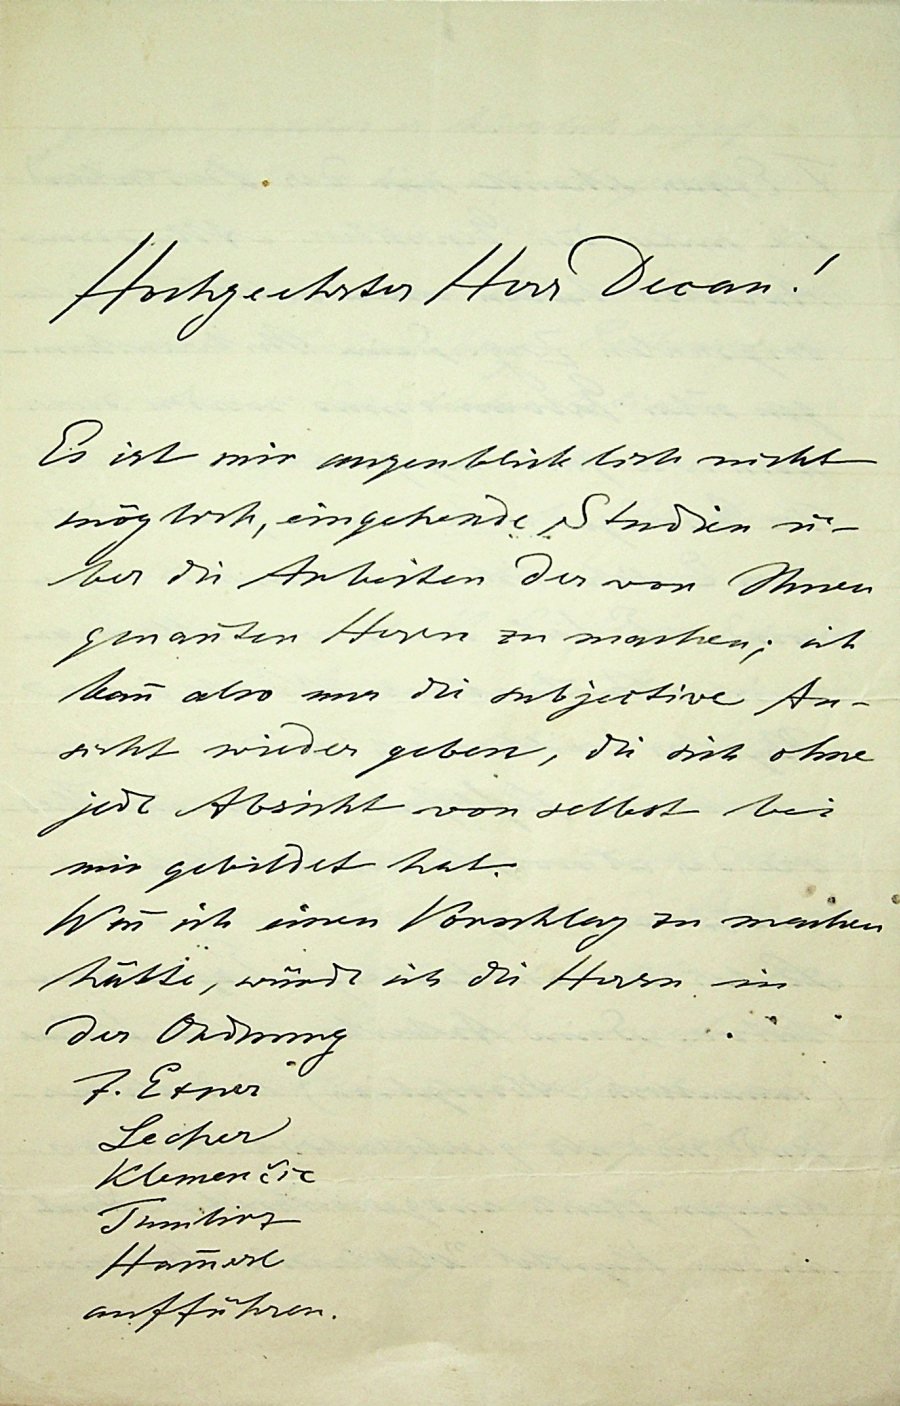 Hochgeehrter Herr Decan!
Es ist mir augenblicklich nicht
möglich, eingehende Studien ü-
ber die Arbeiten der von Ihnen
genan̄ten Herrn zu machen; ich
kan̄ also nur die subjective An-
sicht wieder geben, die sich ohne
jede Absicht von selbst bei
mir gebildet hat.
Wen̄ ich einen Vorschlag zu machen
hätte, würde ich die Herrn in
der Ordnung
F. Exner
Lecher
Klemenčic
Tumlirz
Ham̄erl
aufführen.